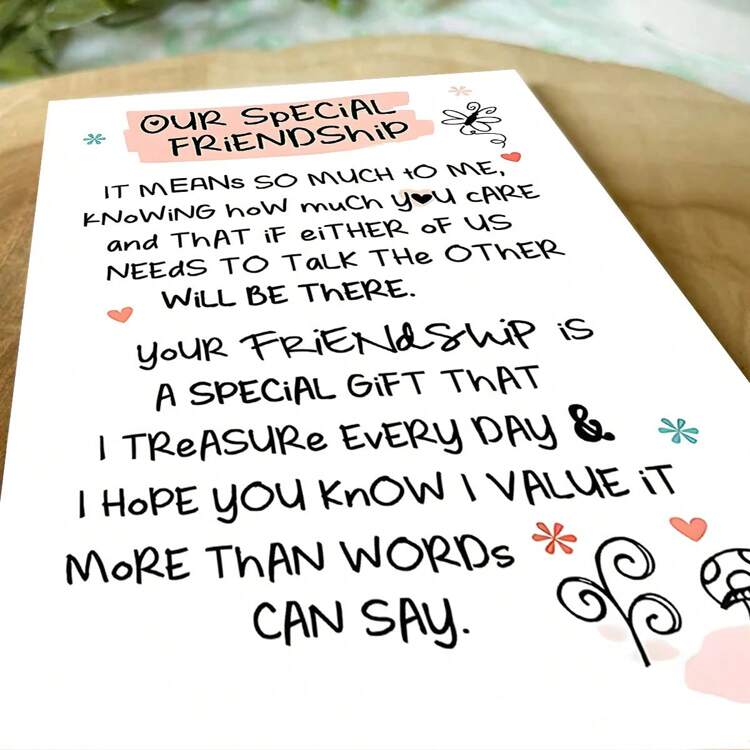 OUR SPECiAL
FRiENDShiP
IT MEANs SO MUCH tO ME,
KNoWiNG hoW muCh yoU CARE
and ThAT iF eiTHER oF US
NEEdS TO TaLK THe OTHER
WiLL BE ThERE.
yoUR FRiENdShiP iS
A SPECiAL GiFT ThAT
I TReASURe EvERy DAy &
I HoPE yOU KnOW I VALUE iT
MoRE ThAN WORDs
CAN SAy.